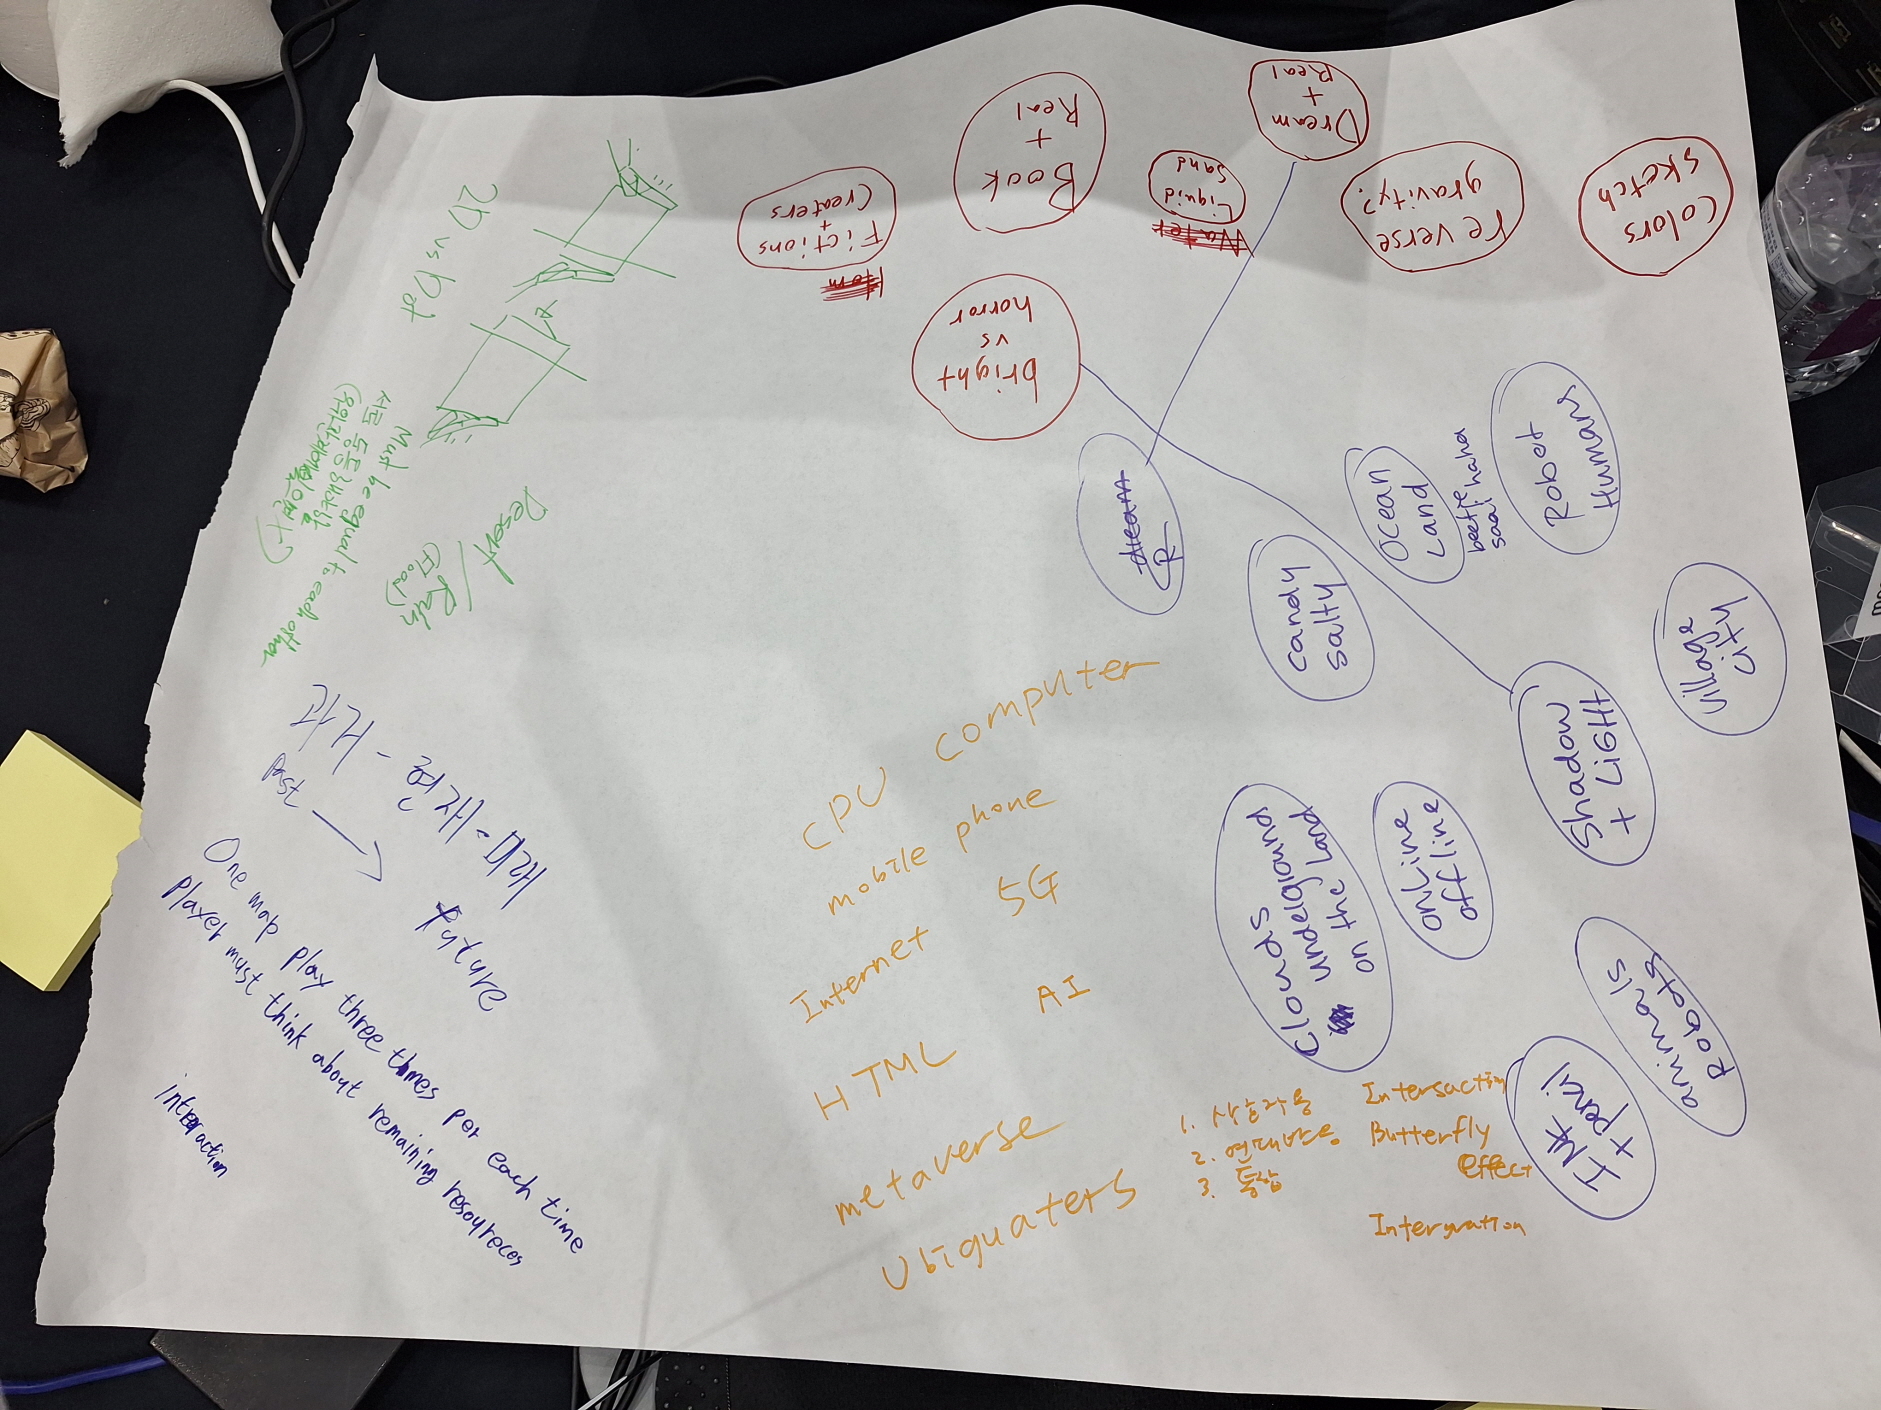 Real
+
Dream
Real
+
Book
Fictions
+
Creaters
Liquid
Sand
Water
reverse
gravity?
Colors
sketch
bright
vs
horror
2D vs
Must be equal to each other
서로 동등해야
Desert
/
Rain
(Flood)
dream
R
Candy
salty
Ocean
Land
Robot
Humans
Village
city
Shadow
+ LiGHt
Clounds
underground
on the Land
online
offline
animals
Robots
INK
+ pencil
과거 - 현재 - 미래
Past
Future
One map play three times per each time
Player must think about remaining resoyreces
Interaction
CPU computer
mobile phone
Internet 5G
HTML AI
metaverse
Ubiquaters
1. 상호작용 Intersaction
2. 연대반응 Butterfly
effect
3. 통합 Intergration